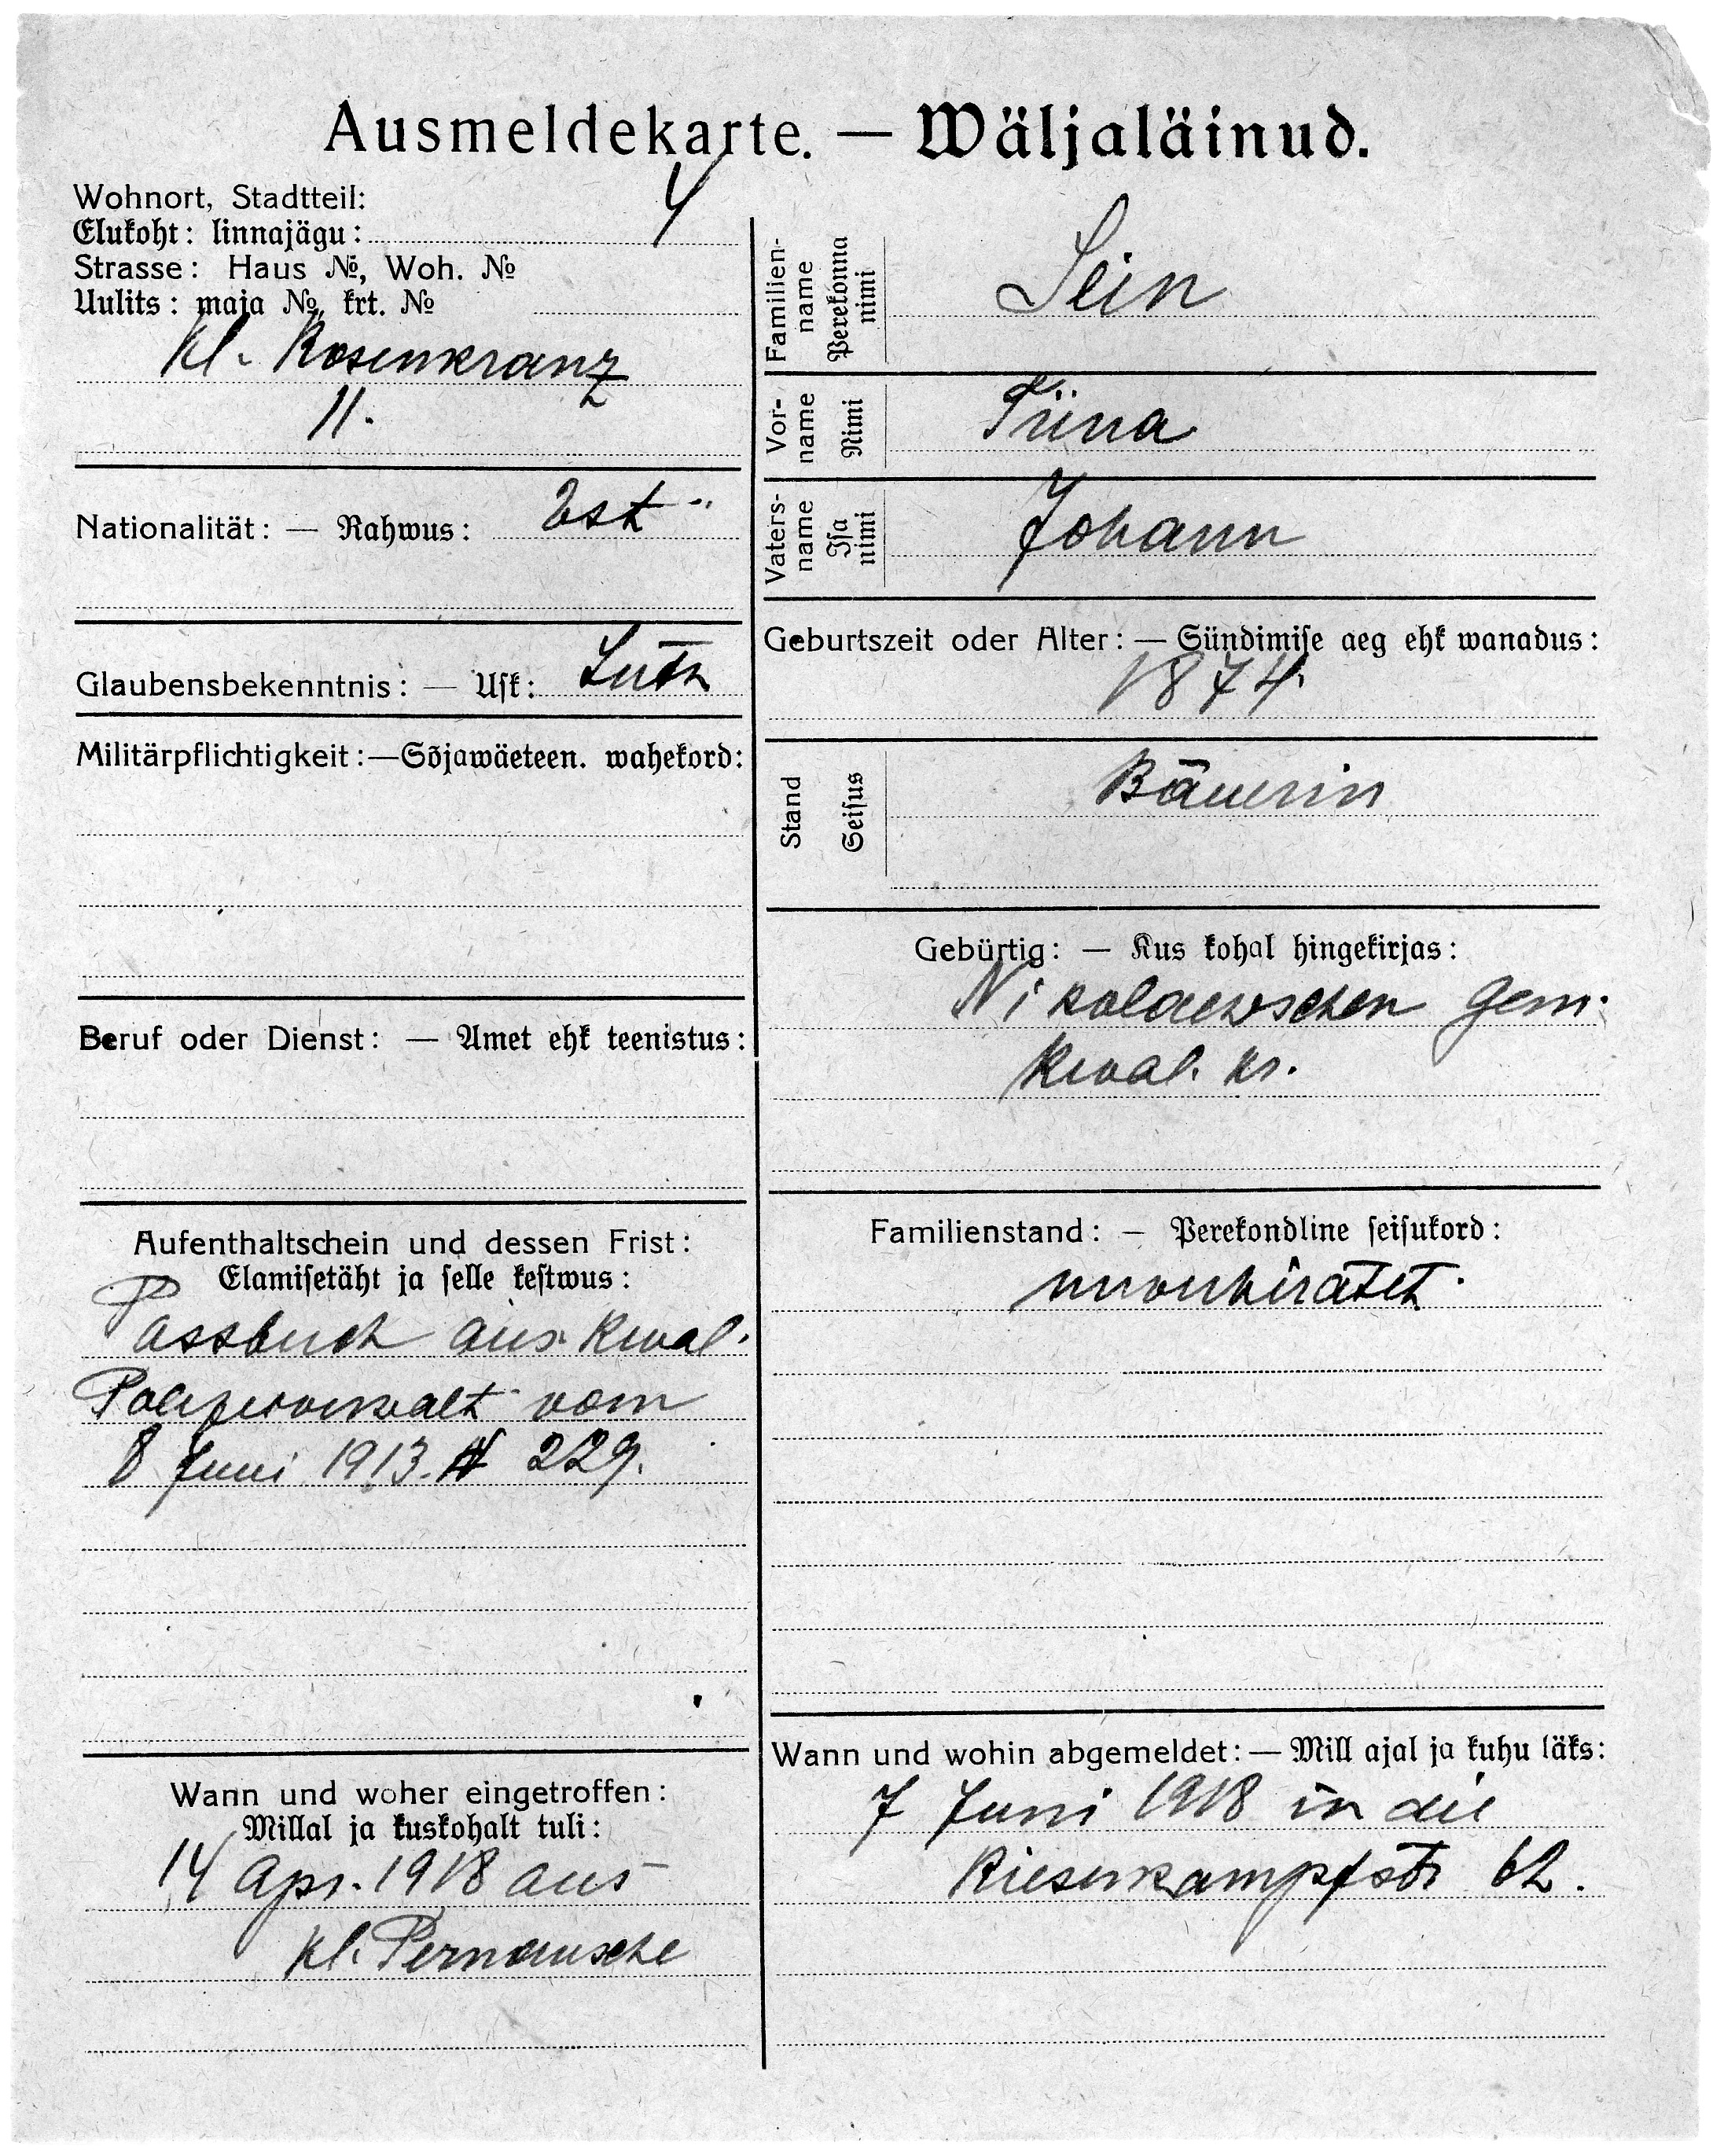 Ausmeldekarte. — Wäljaläinud.
Wohnort, Stadtteil:
Elukoht: linnajägu: 4
Strasse: Haus №, Woh. №
Uulits: maja №, krt. №
Kl. Rosenkranz
11.
Nationalität: — Rahwus: Est
Glaubensbekenntnis: — Usk: Luth
Militärpflichtigkeit:—Sõjawäeteen. wahekord:
Beruf oder Dienst: — Amet ehk teenistus:
Aufenthaltschein und dessen Frist:
Elamisetäht ja selle kestwus:
Passbuch aus Rewal.
Polizeiverwalt vom
8 Juni 1913. N 229.
Wann und woher eingetroffen:
Millal ja kuskohalt tuli:
14 Apr. 1918 aus
Kl. Pernausche
Familien-
name
Perekonna
nimi
Sein
Vor-
name
Nimi
Tiina
Vaters-
name
Isa
nimi
Johann
Geburtszeit oder Alter: — Sündimise aeg ehk wanadus:
1874.
Stand
Seisus
Bäuerin
Gebürtig: — Kus kohal hingekirjas:
Nikolaewschen Gem.
Rewal. Kr.
Familienstand: — Perekondline seisukord:
unverheiratet.
Wann und wohin abgemeldet: — Mill ajal ja kuhu läks:
7 Juni 1918 in die
Riesenkampfstr 62.